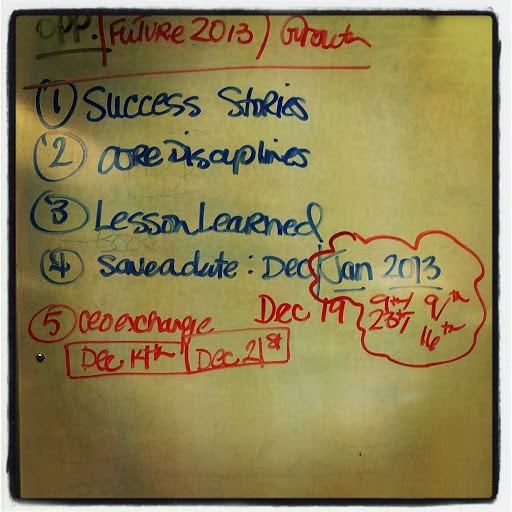 OPP. (FUTURE 2013) Growth
1 Success Stories
2 Core Disciplines
3 Lesson Learned
4 Save a date: Dec/Jan 2013
Dec 19 9th/ 9th
23rd/ 16th
5 CEO exchange
Dec 14th Dec 21st